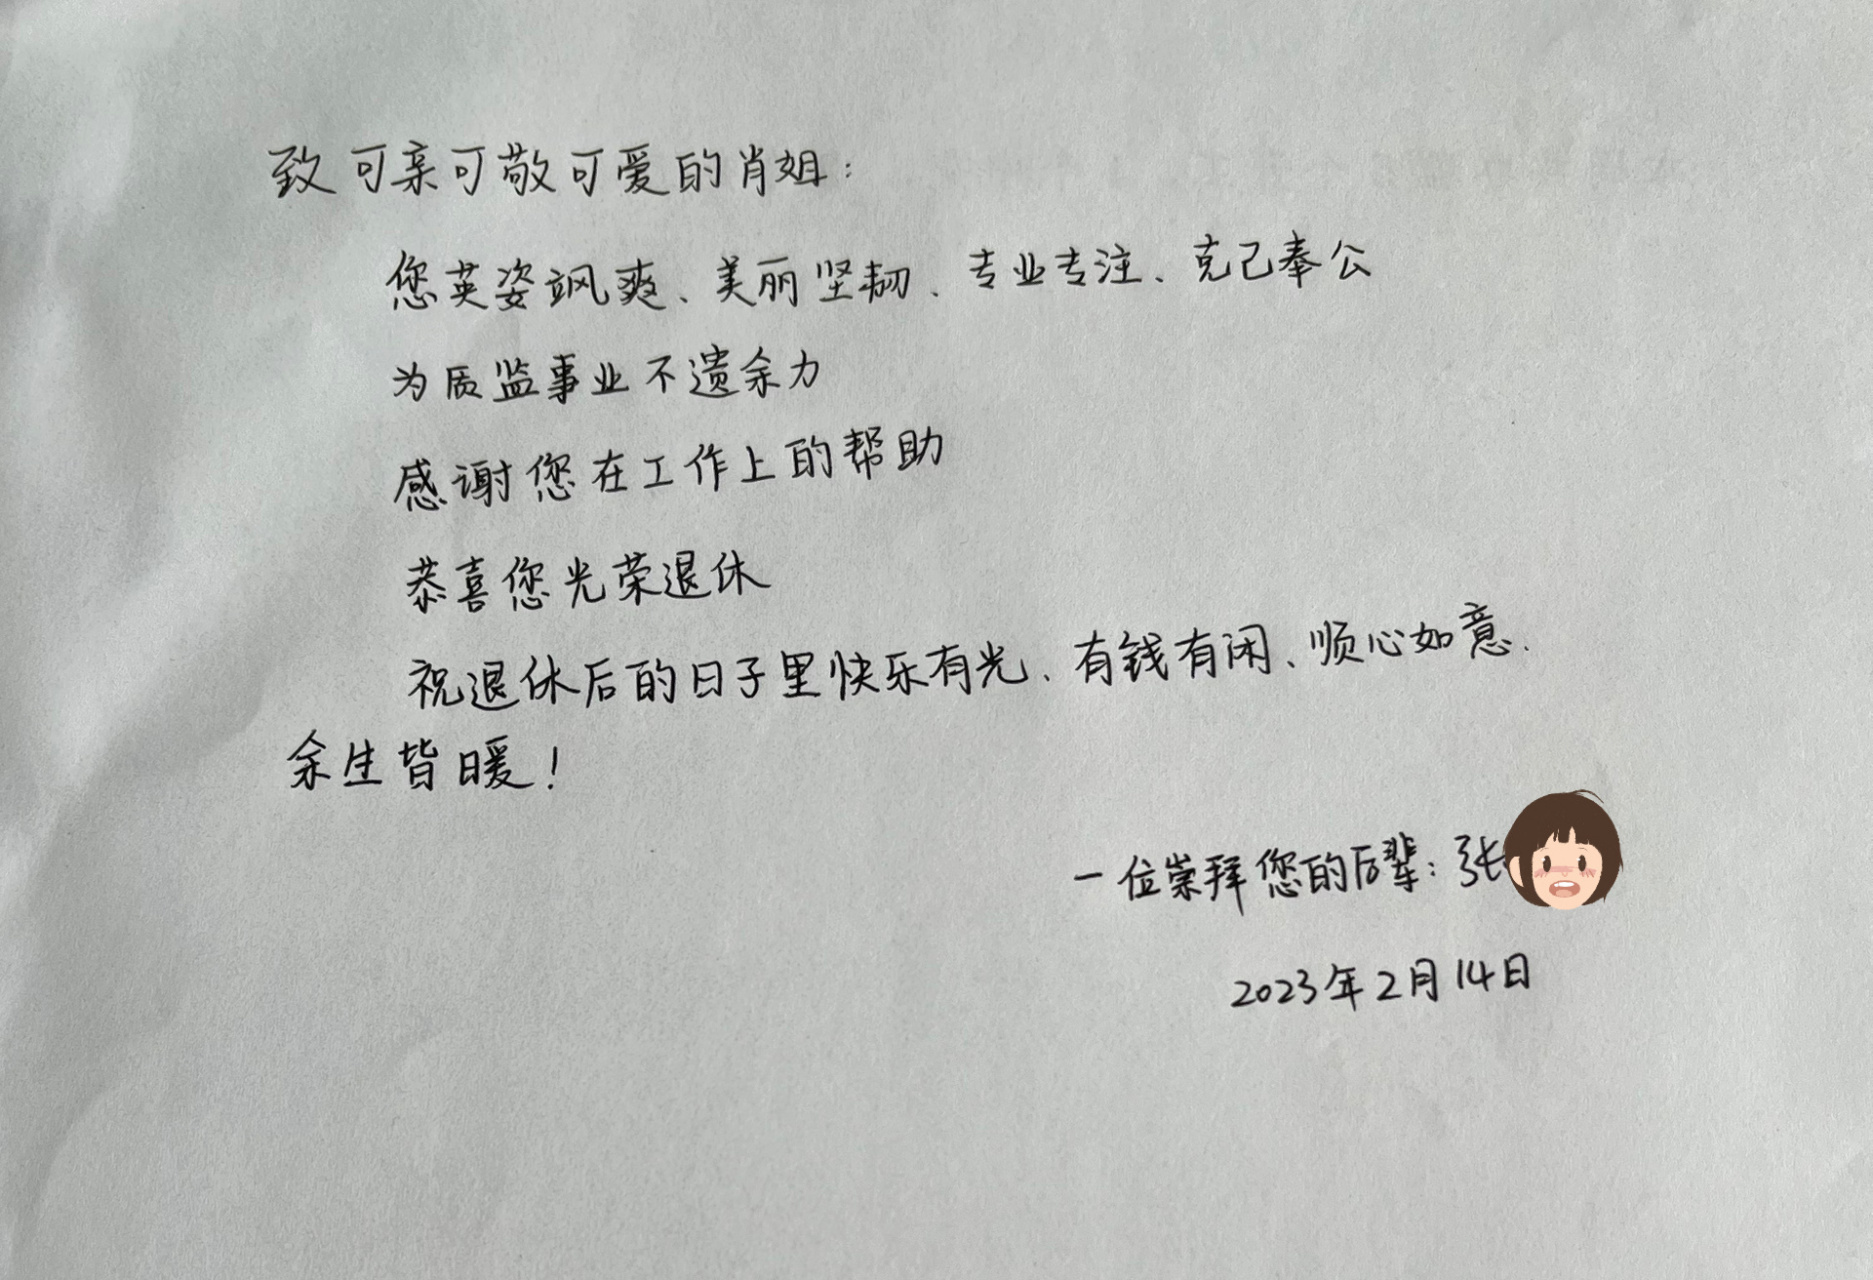 致可亲可敬可爱的肖姐：
您英姿飒爽、美丽坚韧、专业专注、克己奉公
为质监事业不遗余力
感谢您在工作上的帮助
恭喜您光荣退休
祝退休后的日子里快乐有光、有钱有闲、顺心如意、
余生皆暖！
一位崇拜您的后辈：张
2023年2月14日